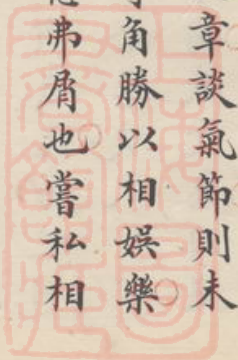 章談氣節則未
角勝以相娛樂
弗屑也嘗私相